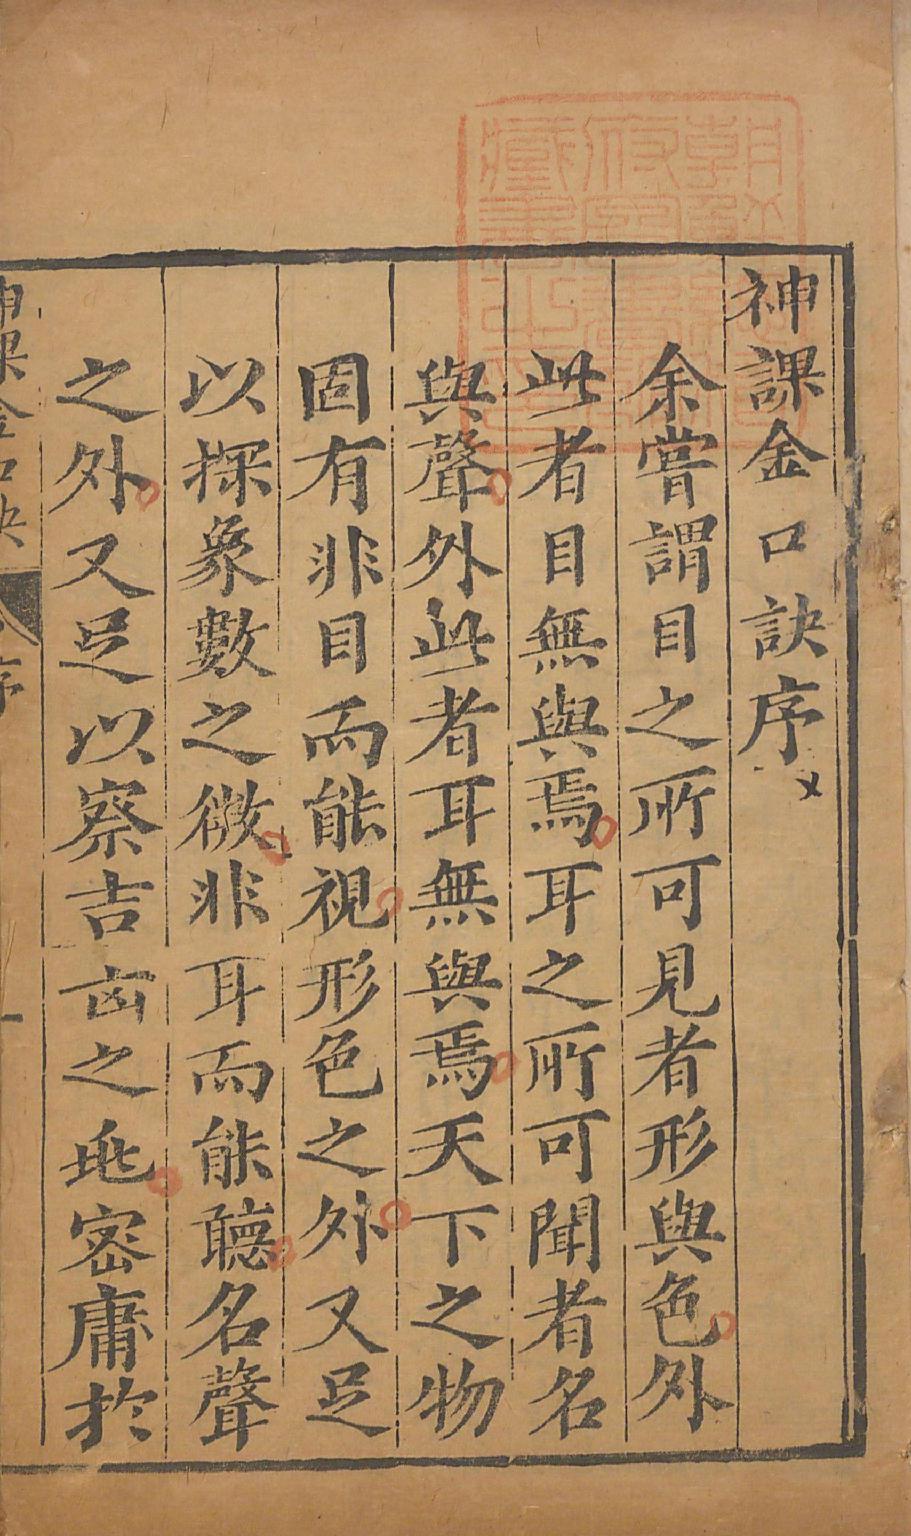 朝鮮總督
府圖書館
藏書之印
神課金口訣序
余嘗謂目之所可見者形與色外
此者目無與焉耳之所可聞者名
與聲外此者耳無與焉天下之物
固有非目而能視形色之外又足
以探象數之微非耳而能聽名聲
之外又足以察吉㐫之兆密庸於
神課金口訣 序 一